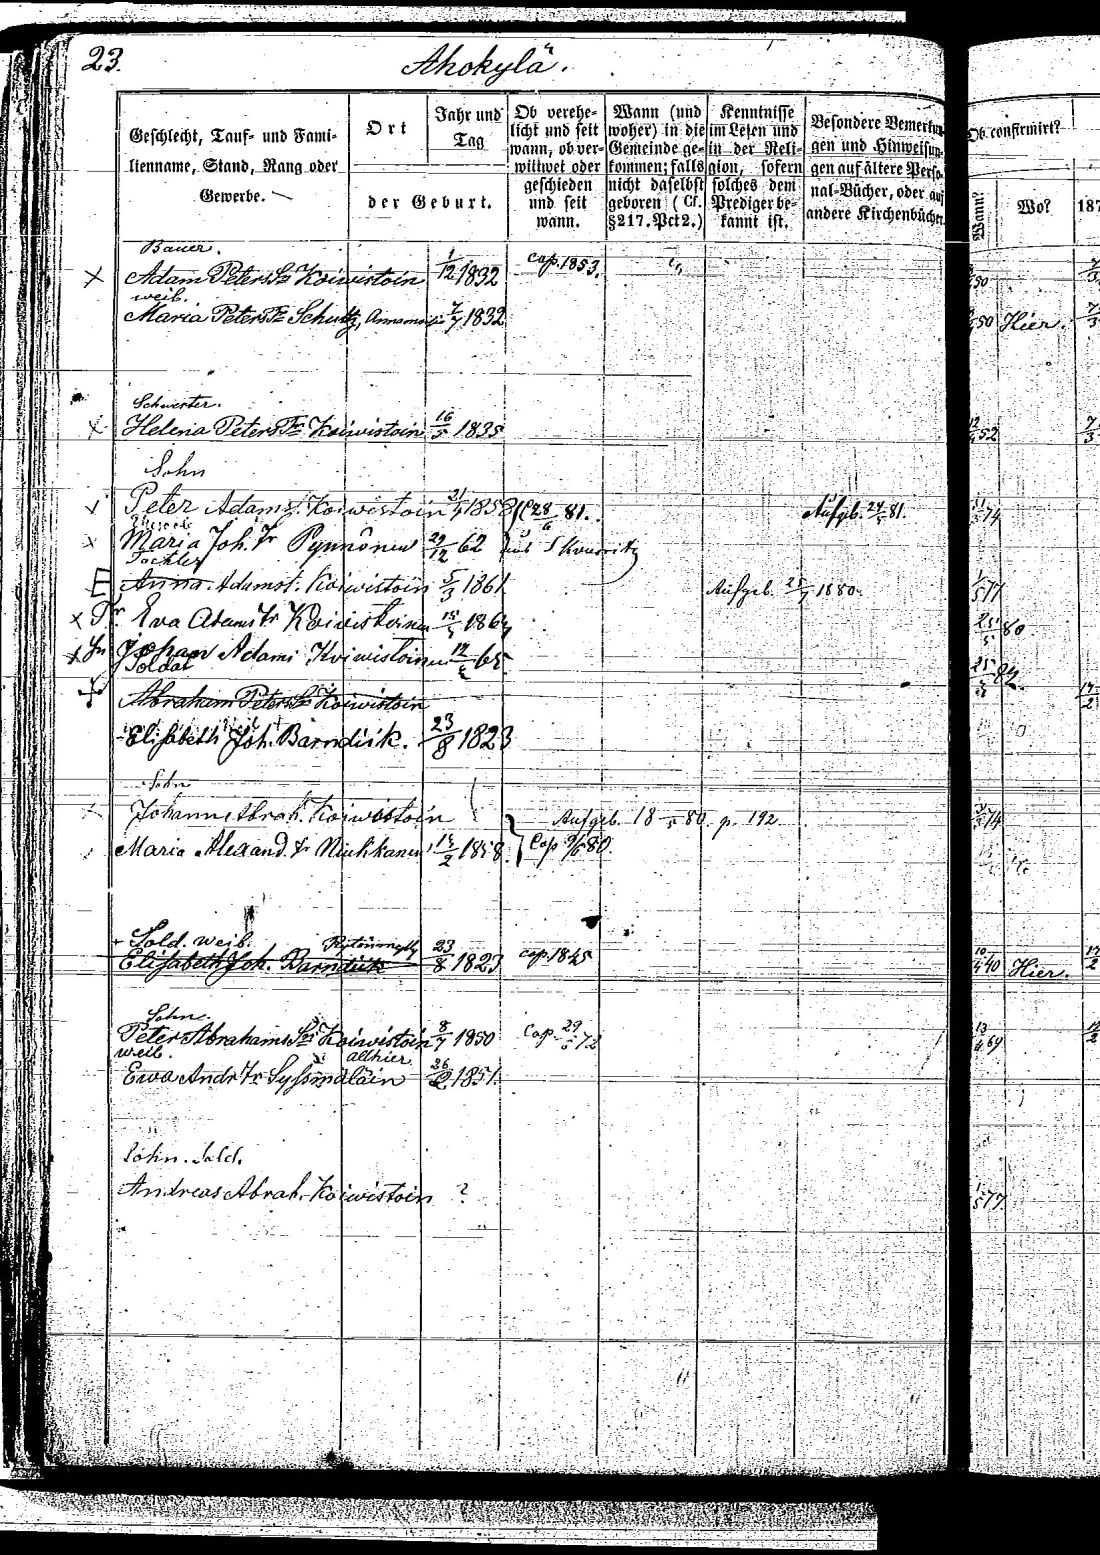 23.
Ahokylä.
Geschlecht, Tauf- und Fami-
lienname, Stand, Rang oder
Gewerbe.
Ort
der Geburt.
Jahr und
Tag
Ob verehe-
licht und seit
wann, ob ver-
wittwet oder
geschieden
und seit
wann.
Wann (und
woher) in die
Gemeinde ge-
kommen; falls
nicht daselbst
geboren (Cf.
§ 217. Pct 2.)
Kenntnisse
im Lesen und
in der Reli-
gion, sofern
solches dem
Prediger be-
kannt ist.
Besondere Bemerkun-
gen und Hinweisun-
gen auf ältere Perso-
nal-Bücher, oder auf
andere Kirchenbücher.
Ob confirmirt?
Wann?
Wo?
187
Bauer.
Adam Peters Sn Koiwistoin 1/12 1832 cap. 1853.
weib.
Maria Peters Tr Schultz, 7/7 1832 Hier.
Schwester.
Helena Peters Tr Koiwistoin 16/5 1835 52
Sohn
Peter Adams Koiwistoin 1858 28/6 81. Aufgeb. 81. 74
Maria Joh. Tr Pynnönen 29/12 62 aus
Tochter
Anna Adamst. Koiwistoin 5/3 1861 Aufgeb. 1880. 77
Tr. Eva Adams Tr Koiwistoinen 80
Sn Johan Adams Koiwistoinen 65
Soldat
Abraham Peters Sn Koiwistoin
weib
Elisabeth Joh. Barndick. 23/8 1823
Sohn
Johann Abrah. Koiwistoin Aufgeb. 18/5 80. p. 192. 74
Maria Alexand. tr Niukkanen 1858. Cap 80.
Sold. weib.
Elisabeth Joh. Barndick 23/8 1823 cap. 1845 40 Hier.
Sohn.
Peter Abrahams Sn Koiwistoin 8/7 1850 Cap. 29/6 72 69
weib. allhier
Ewa Andr Tr Syssmäläin 1851.
Sohn. Sold.
Andreas Abrah. Koiwistoin ? 1/5 77